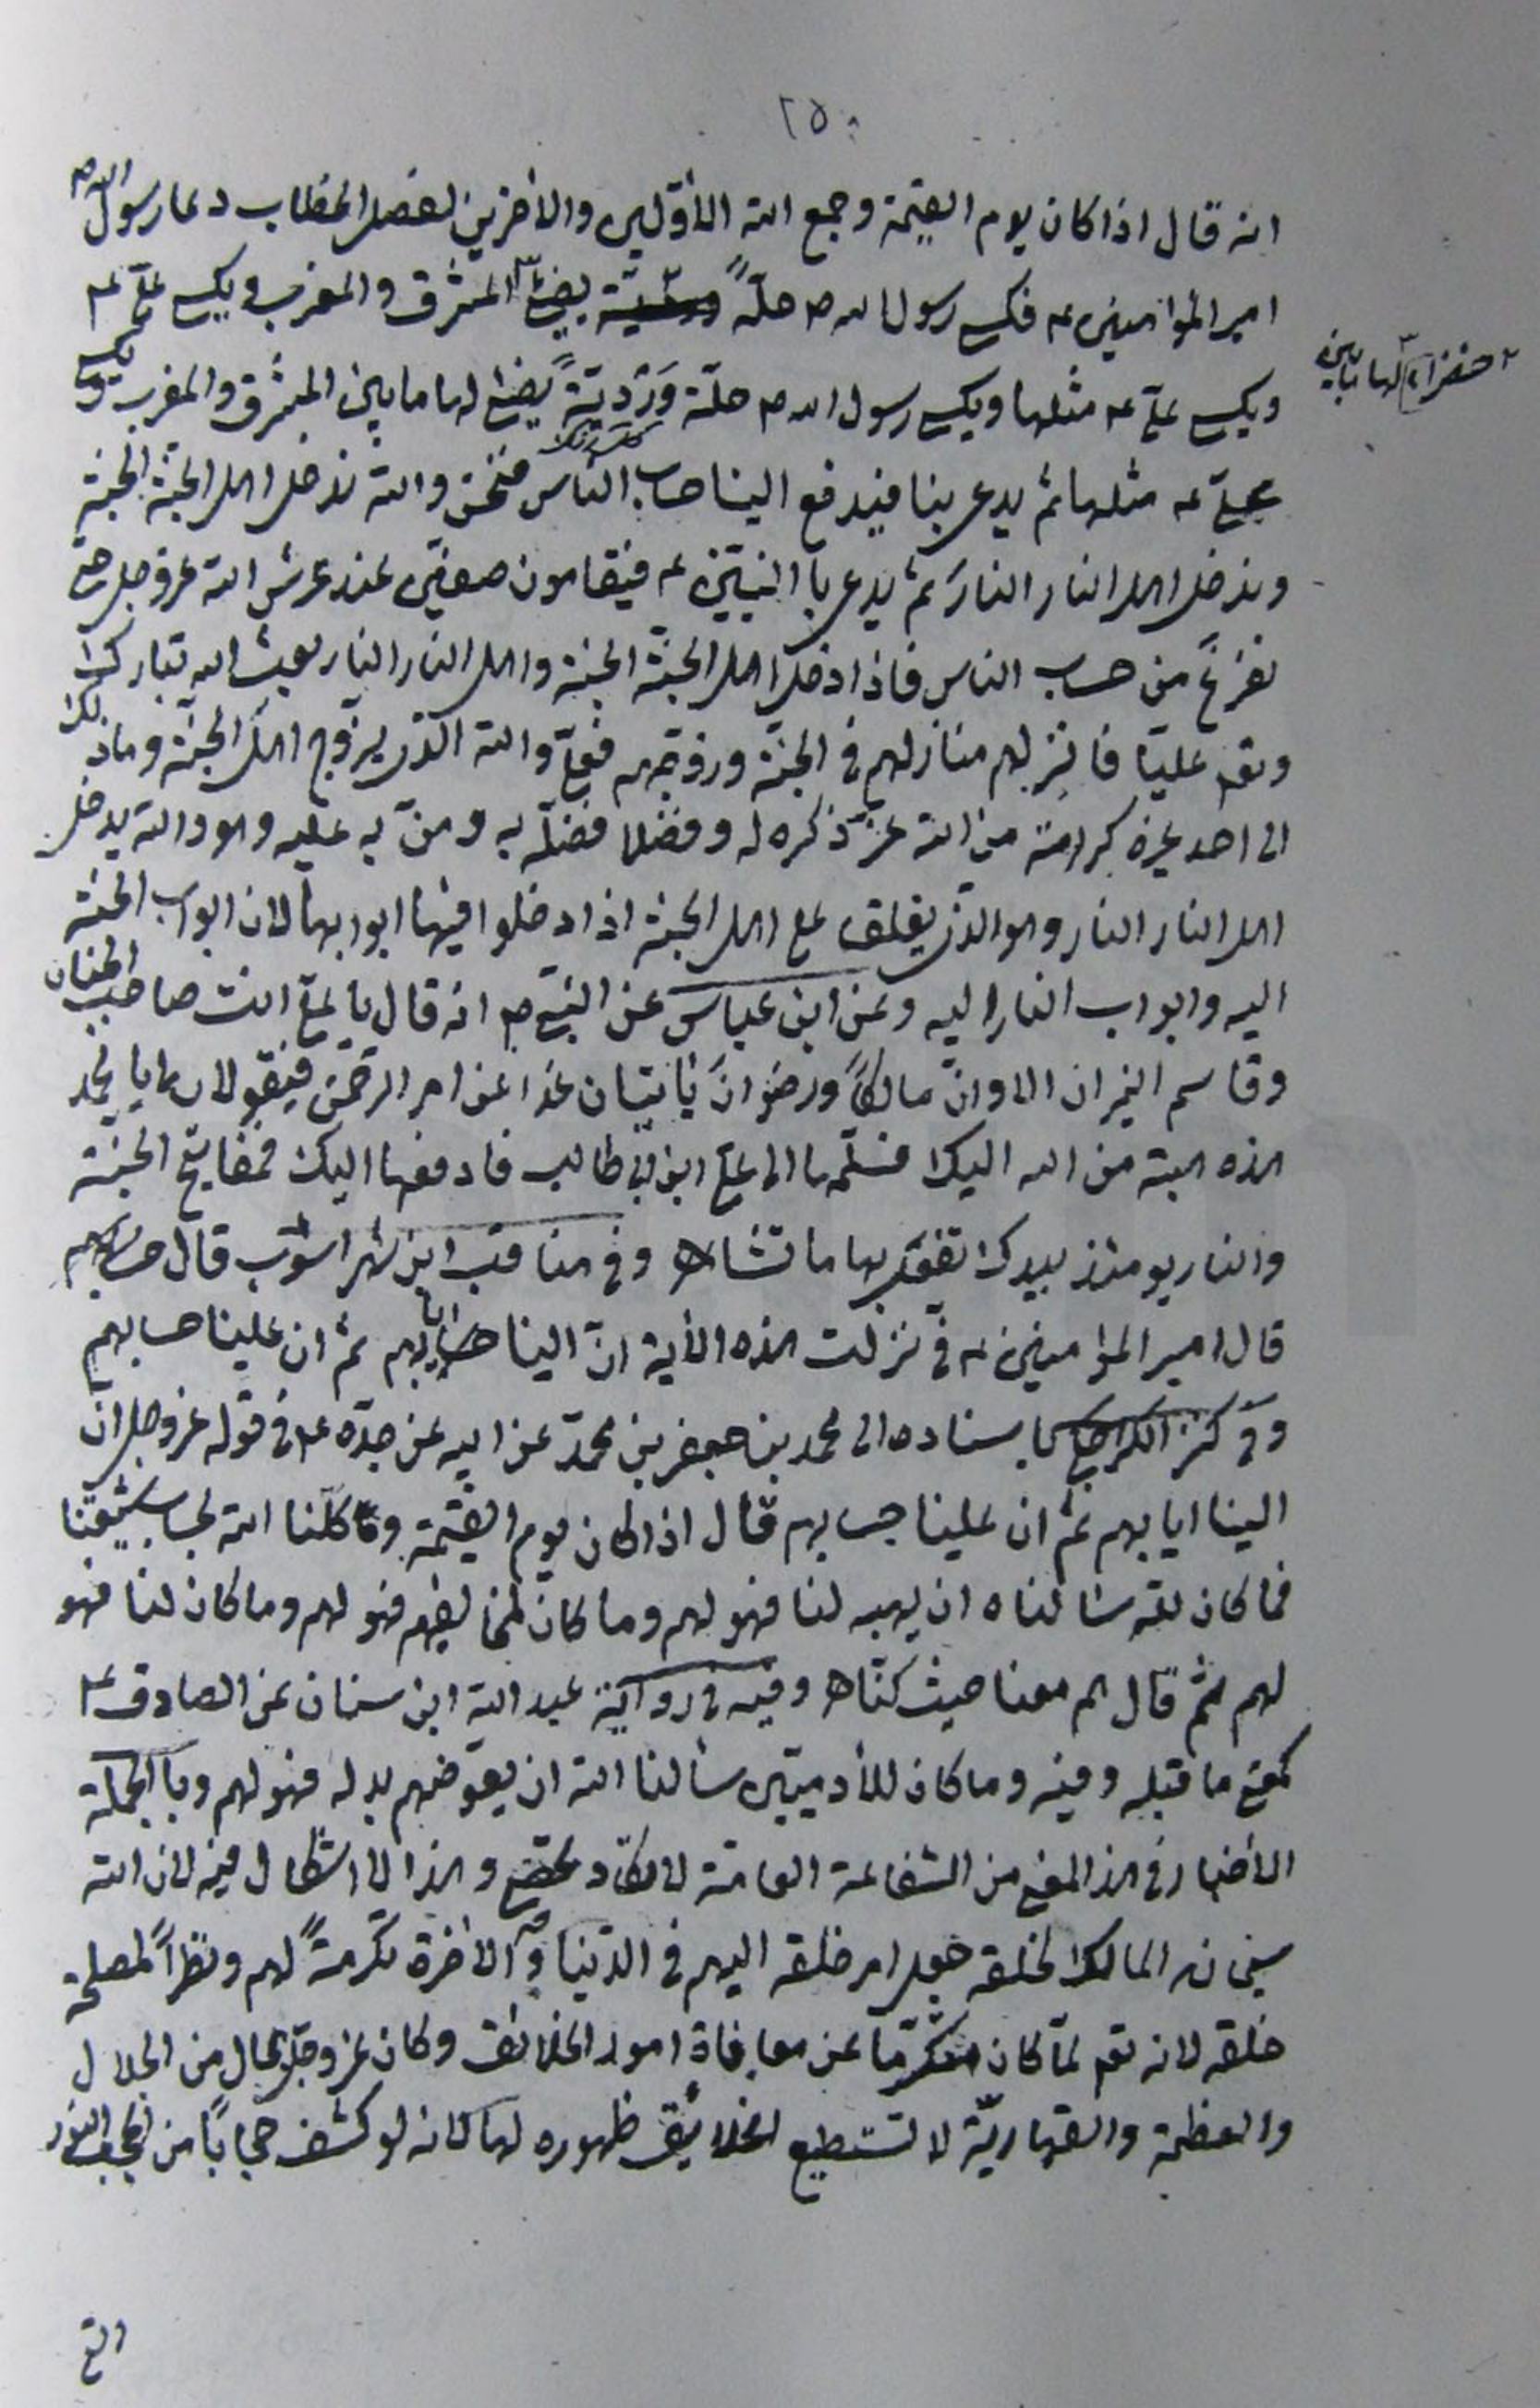 ٢٥٠
انه قال اذا كان يوم القيمة وجمع الله الأوّلين والأخرين لفصل الخطاب دعا رسول الله ص
امير المؤامنين ع فيكسى رسول الله ص حلّةً يضئ المشرق والمغرب ويكسى علىّ ع
خضراء لها مابين
ويكسى علىّ ع مثلها ويكسى رسول الله ص حلّة وَرْديّةً يضئ لها مابين المشرق والمغرب ويكسى
علىّ ع مثلها ثم يدعى بنا فيدفع الينا حساب الناس فنحن والله ندخل اهل الجنّة الجنة
وندخل اهل النار النارَ ثم يدعى باالنبيّين ع فيقامون صفين عند عرش الله عزوجل حتى
نفرغ من حساب الناس فاذا ادخل اهل الجنّة الجنة واهل النار النار بعث الله تبارك
وتعم عليّا فانزلهم منازلهم فى الجنّة وزوّجهم فعلىّ والله الذى يزوّج اهل الجنّة وماذلك
الى احد غيره كرامة من الله عزّ ذكره له وفضلا فضلّه به ومنّ به عليه وهو والله يدخل
اهل النار النار وهو الذى يغلق على اهل الجنة اذا دخلوا فيها ابوابها لان ابواب الجنّة
اليه وابواب النار اليه وعن ابن عباس عن النبى ص انه قال يا على انت صاحب الجنان
وقاسم النيران الا وانّ مالكاً ورضوانَ يأتيان غدا عن امر الرحمن فيقولان يا محمد
هذه هبة من الله اليك فسلّمها الى علىّ ابن ابى طالب فادفعها اليك فمفاتيح الجنة
والنار يومئذ بيدك تفعل بها ما تشاء اه وفى مناقب ابن شهراشوب قال
قال امير المؤامنين ع فىّ نزلت هذه الأية انّ الينا ايابهم ثم ان علينا حسابهم
وفى كنز الكراجكى باسناده الى محمد بن جعفر بن محمدّ عن ابيه عن جدّه ع فى قوله عزوجل انّ
الينا ايابهم ثم ان علينا حسابهم قال اذا كان يوم القيمة وكّلنا الله بحساب شيعتنا
فما كان لله سئالناه ان يهبه لنا فهو لهم وما كان لمخالفيهم فهو لهم وما كان لنا فهو
لهم ثم قال هم معنا حيث كنّا اه وفيه فى رواية عبد الله ابن سنان عن الصادق ع
كمعنى ما قبله وفيه وما كان للأدميّين سألنا الله ان يعوّضهم بدله فهو لهم وباالجملة
الأخبار فى هذا المعنى من الشفاعة العامّة لا تكاد تحصى وهذا لا اشكال فيه لان الله
سبحانه المالك لخلقه جعل امر خلقه اليهم فى الدّنيا وفى الأخرة تكرمةً لهم ونظراً لمصلحة
خلقه لانه تعم لمّا كان متكرّما عن معاناة امور الخلائق وكان عزوجلّ بحال من الجلال
والعظمة والقهاريّة لا تستطيع الخلائق ظهوره لها لانه لو كشف حجاباً من الحجب النور
التى